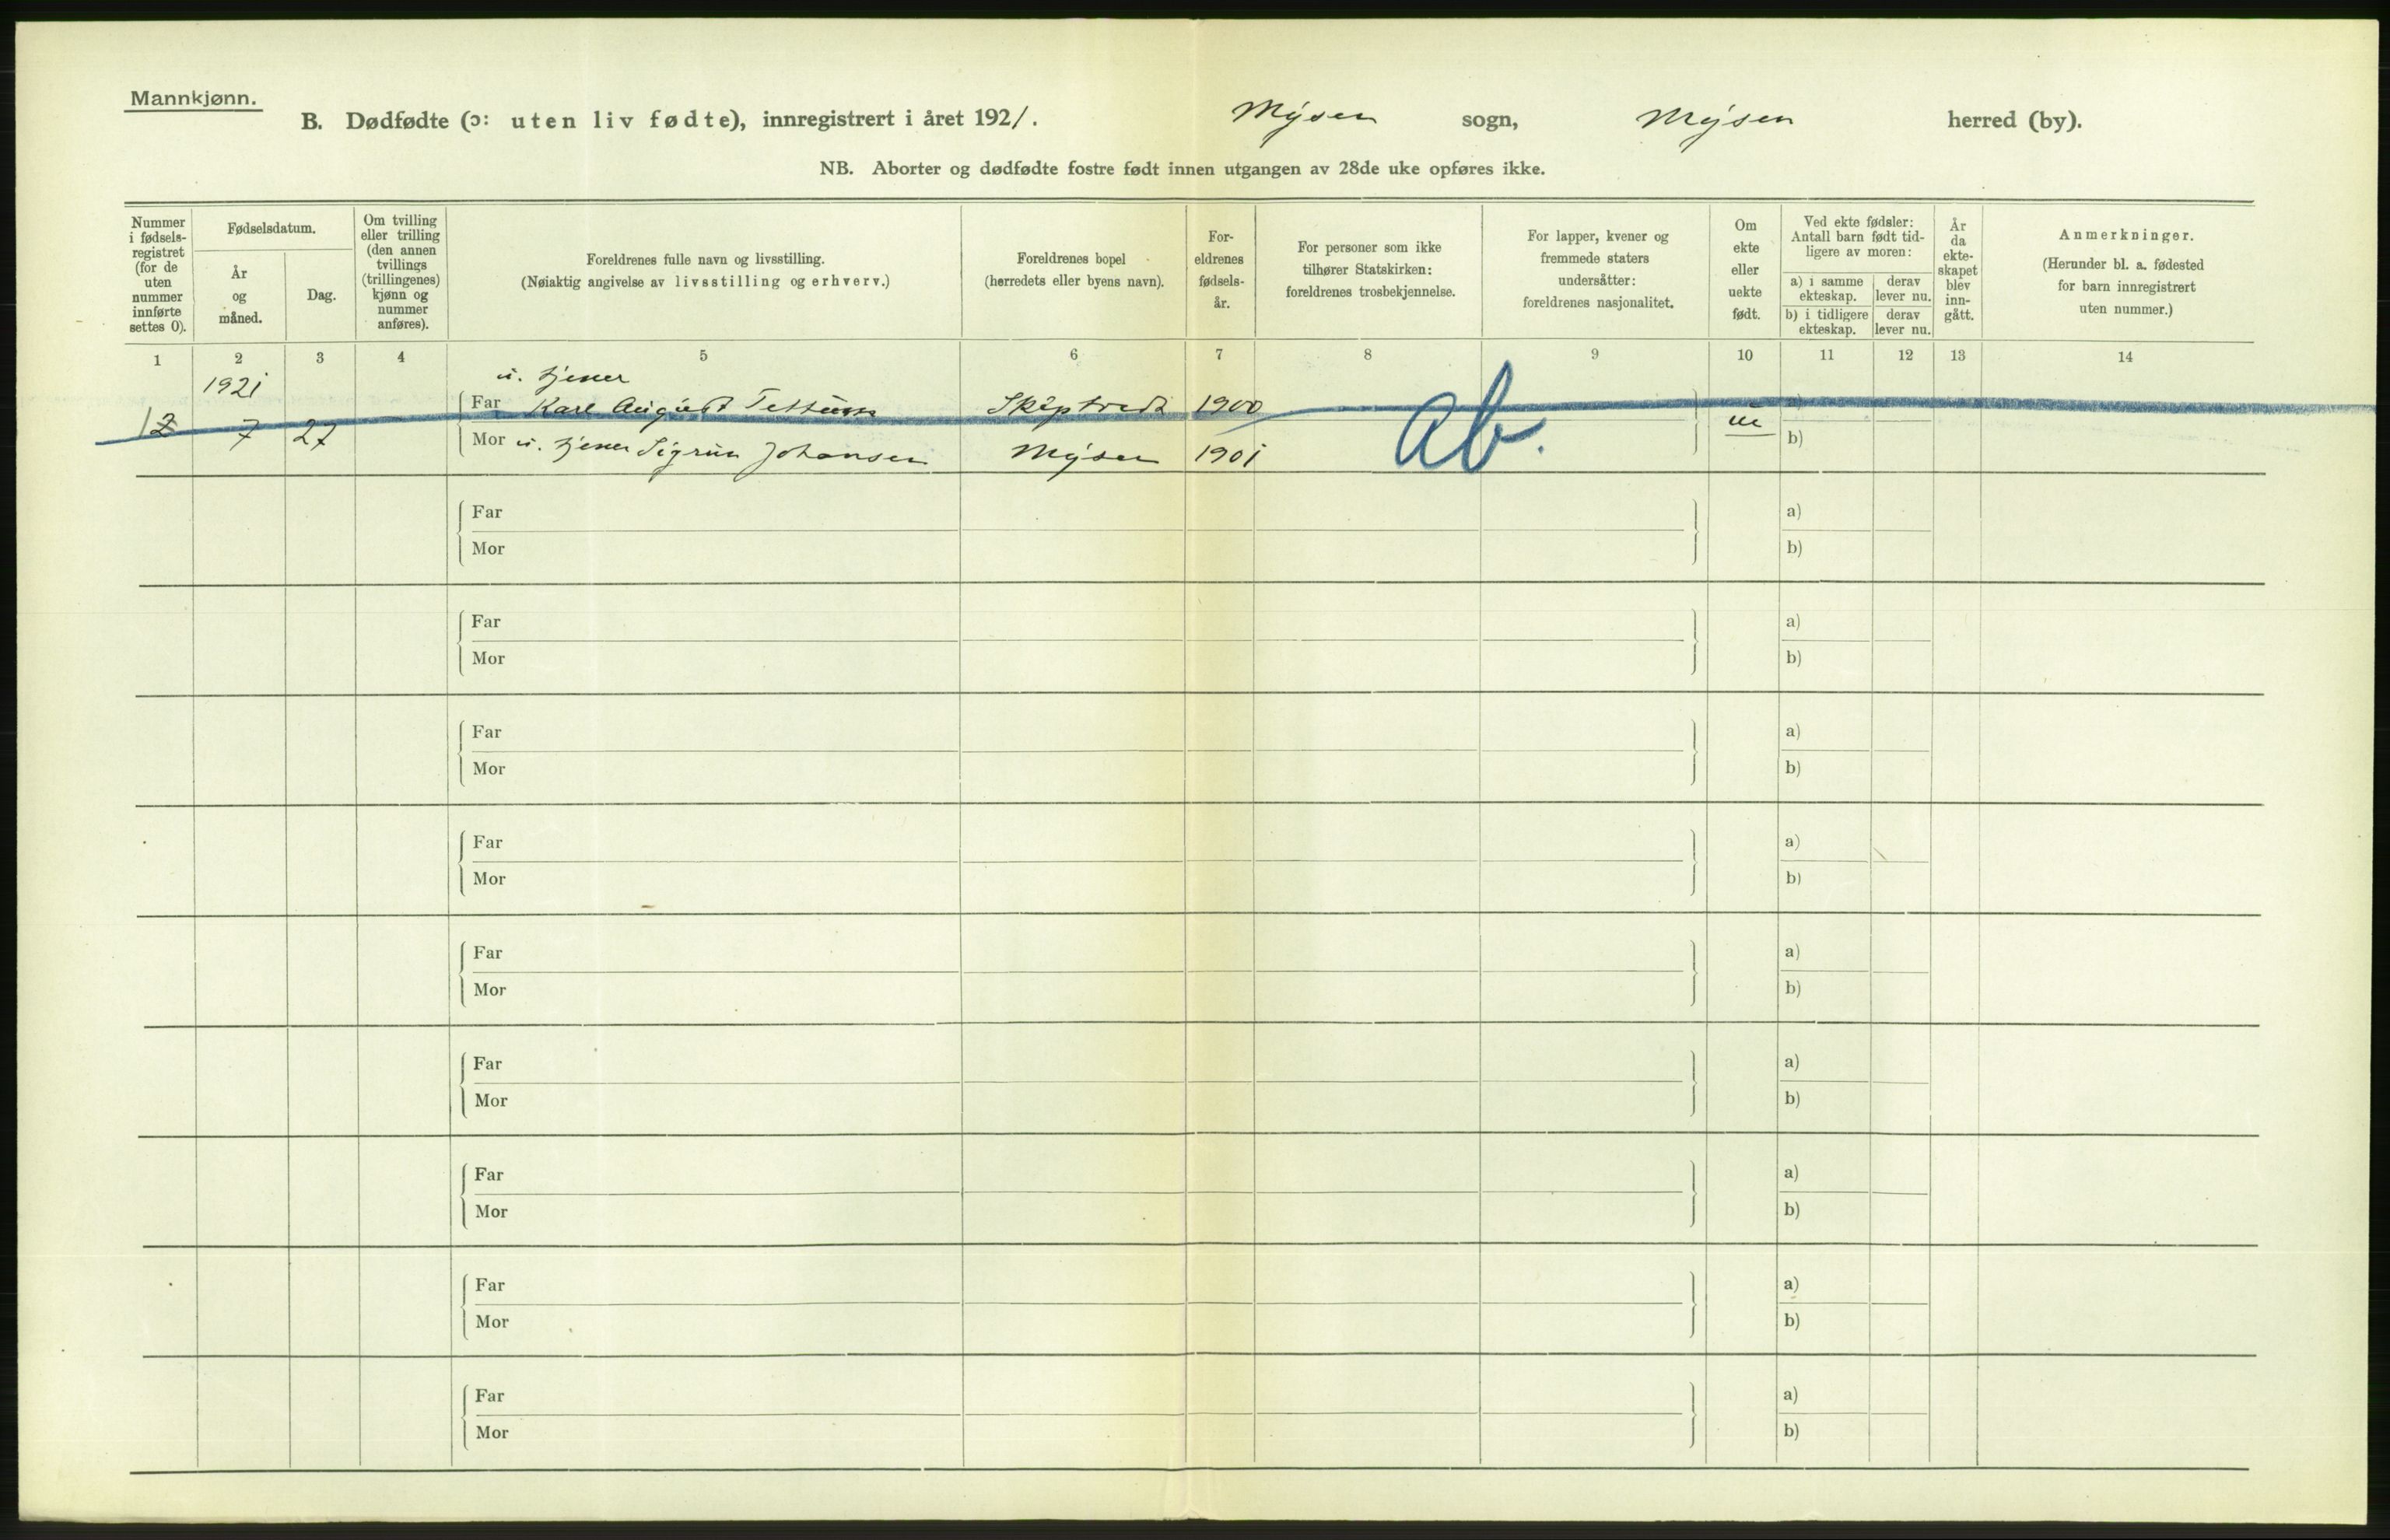 Mannkjønn.
B. Dødfødte (ɔ: uten liv fødte), innregistrert i året 1921. Mysen sogn, Mysen herred (by).
NB. Aborter og dødfødte fostre født innen utgangen av 28de uke opføres ikke.
Nummer i fødsels- registret (for de uten nummer innførte settes 0).
Fødselsdatum.
År og måned.
Dag.
Om tvilling eller trilling (den annen tvillings (trillingenes) kjønn og nummer anføres).
Foreldrenes fulle navn og livsstilling.
(Nøiaktig angivelse av livsstilling og erhverv.)
Foreldrenes bopel
(herredets eller byens navn).
For- eldrenes fødsels- år.
For personer som ikke tilhører Statskirken: foreldrenes trosbekjennelse.
For lapper, kvener og fremmede staters undersåtter: foreldrenes nasjonalitet.
Om ekte eller uekte født.
Ved ekte fødsler: Antall barn født tid- ligere av moren:
a) i samme ekteskap. derav lever nu.
b) i tidligere ekteskap. derav lever nu.
År da ekte- skapet blev inn- gått.
Anmerkninger.
(Herunder bl. a. fødested for barn innregistrert uten nummer.)
1 2 3 4 5 6 7 8 9 10 11 12 13 14
1921 u. tjener
Far Karl August 1900
12 7 27 ue
Mor u. tjener Sigrun Johansen Mysen 1901 b)
Ab.
Far a)
Mor b)
Far a)
Mor b)
Far a)
Mor b)
Far a)
Mor b)
Far a)
Mor b)
Far a)
Mor b)
Far a)
Mor b)
Far a)
Mor b)
Far a)
Mor b)